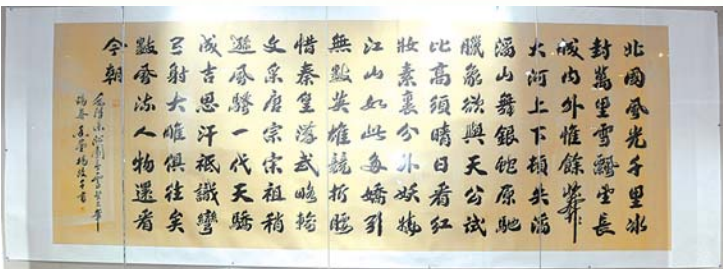 北國風光千里冰
封萬里雪飄望長
城内外惟餘莽
大河上下頓失滔
滔山舞銀蛇原馳
臘象欲與天公試
比高須晴日看紅
妝素裹分外妖嬈
江山如此多嬌引
無數英雄競折腰
惜秦皇漢武略輸
文采唐宗宋祖稍
遜風騷一代天驕
成吉思汗祇識彎
弓射大雕俱往矣
數風流人物還看
今朝
毛澤東沁園春雪
書